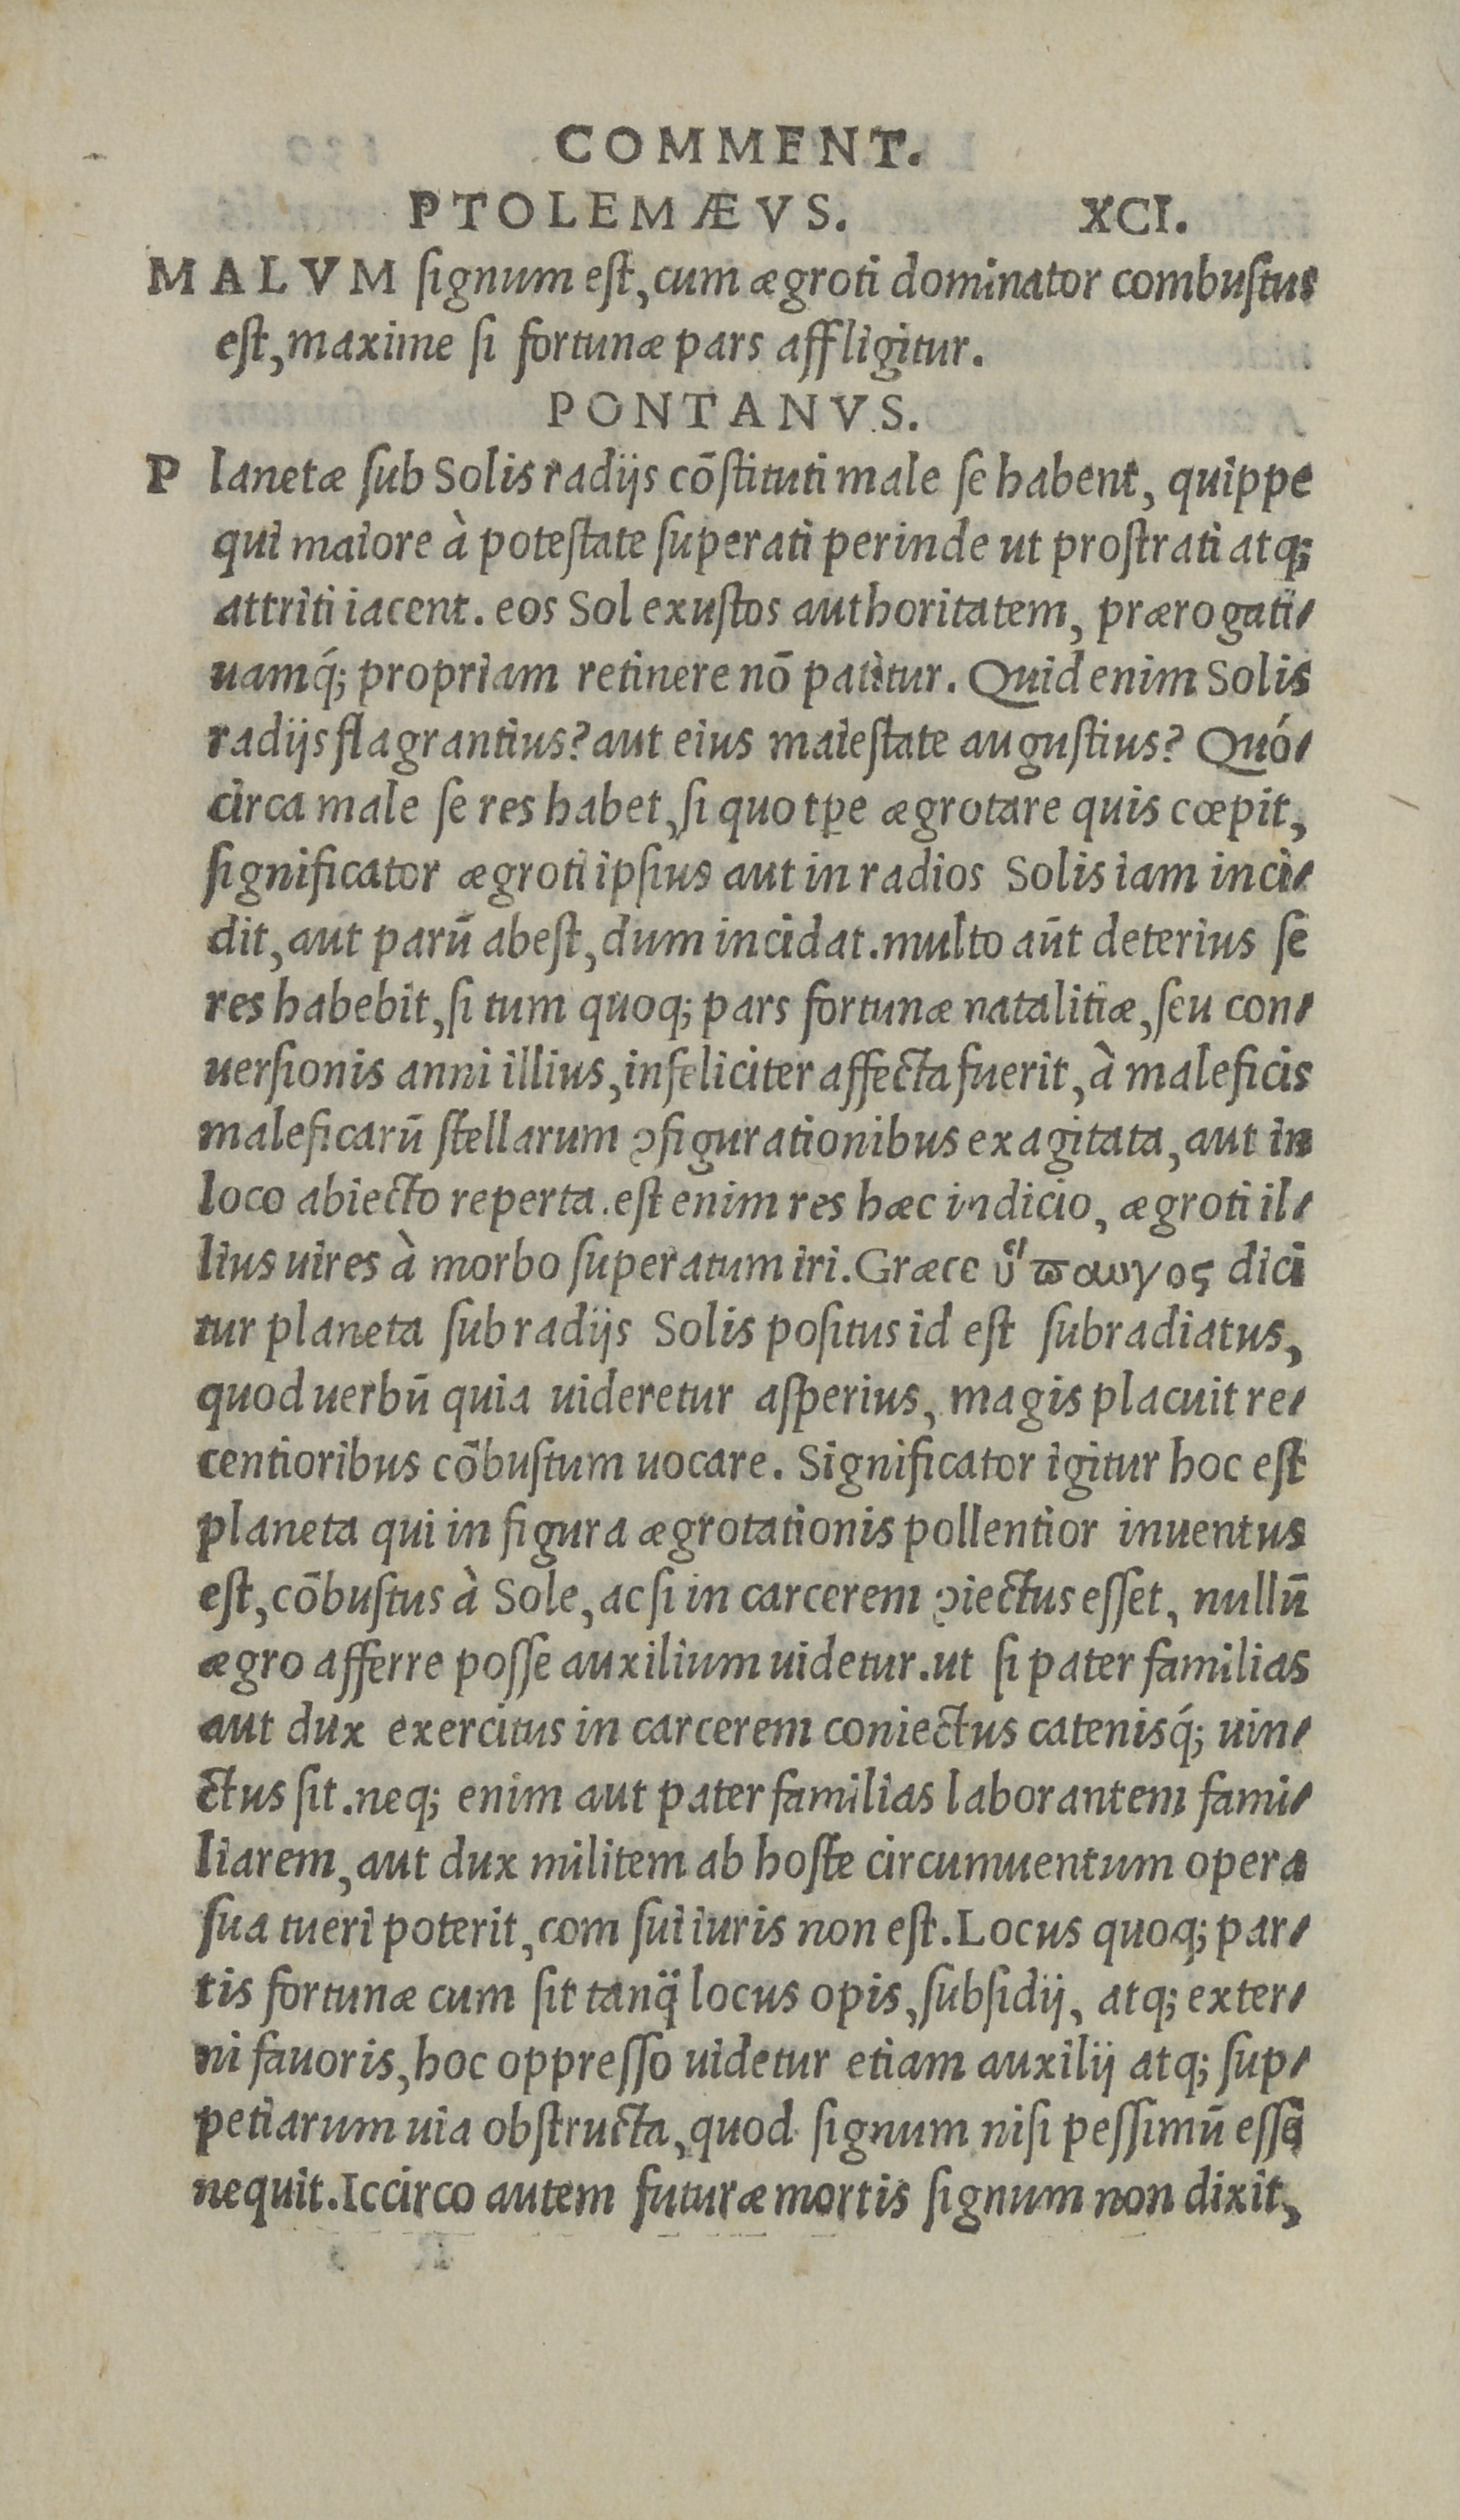 COMMENT.
PTOLEMÆVS. XCI.
MALVM ſignum eſt, cum ægroti dominator combuſtus
eſt, maxime ſi fortunæ pars affligitur.
PONTANVS.
Planetæ ſub Solis radijs cōſtituti male ſe habent, quippe
qui maiore à poteſtate ſuperati perinde ut proſtrati atq;
attriti iacent. eos Sol exuſtos authoritatem, prærogati-
uamq́; propriam retinere nō patitur. Quid enim Solis
radijs flagrantius? aut eius maieſtate auguſtius? Quó-
circa male ſe res habet, ſi quo tꝑe ægrotare quis cœpit,
ſignificator ægroti ipſius aut in radios Solis iam inci-
dit, aut parū abeſt, dum incidat. multo aūt deterius ſe
res habebit, ſi tum quoq; pars fortunæ natalitiæ, ſeu con-
uerſionis anni illius, infeliciter affecta fuerit, à maleficis
maleficarū ſtellarum ꝯfigurationibus exagitata, aut in
loco abiecto reperta. eſt enim res hæc indicio, ægroti il-
lius uires à morbo ſuperatum iri. Græce ὕπαυγος dici
tur planeta ſub radijs Solis poſitus id eſt ſubradiatus,
quod uerbū quia uideretur aſperius, magis placuit re-
centioribus cōbuſtum uocare. Significator igitur hoc eſt
planeta qui in figura ægrotationis pollentior inuentus
eſt, cōbuſtus à Sole, ac ſi in carcerem ꝯiectus eſſet, nullū
ægro afferre poſſe auxilium uidetur. ut ſi pater familias
aut dux exercitus in carcerem coniectus catenisq́; uin-
ctus ſit. neq; enim aut pater familias laborantem fami-
liarem, aut dux militem ab hoſte circumuentum opera
ſua tueri poterit, com ſui iuris non eſt. Locus quoq; par-
tis fortunæ cum ſit tanq̈ locus opis, ſubſidij, atq; exter-
ni fauoris, hoc oppreſſo uidetur etiam auxilij atq; ſup-
petiarum uia obſtructa, quod ſignum niſi peſſimū eſſe
nequit. Iccirco autem futuræ mortis ſignum non dixit,